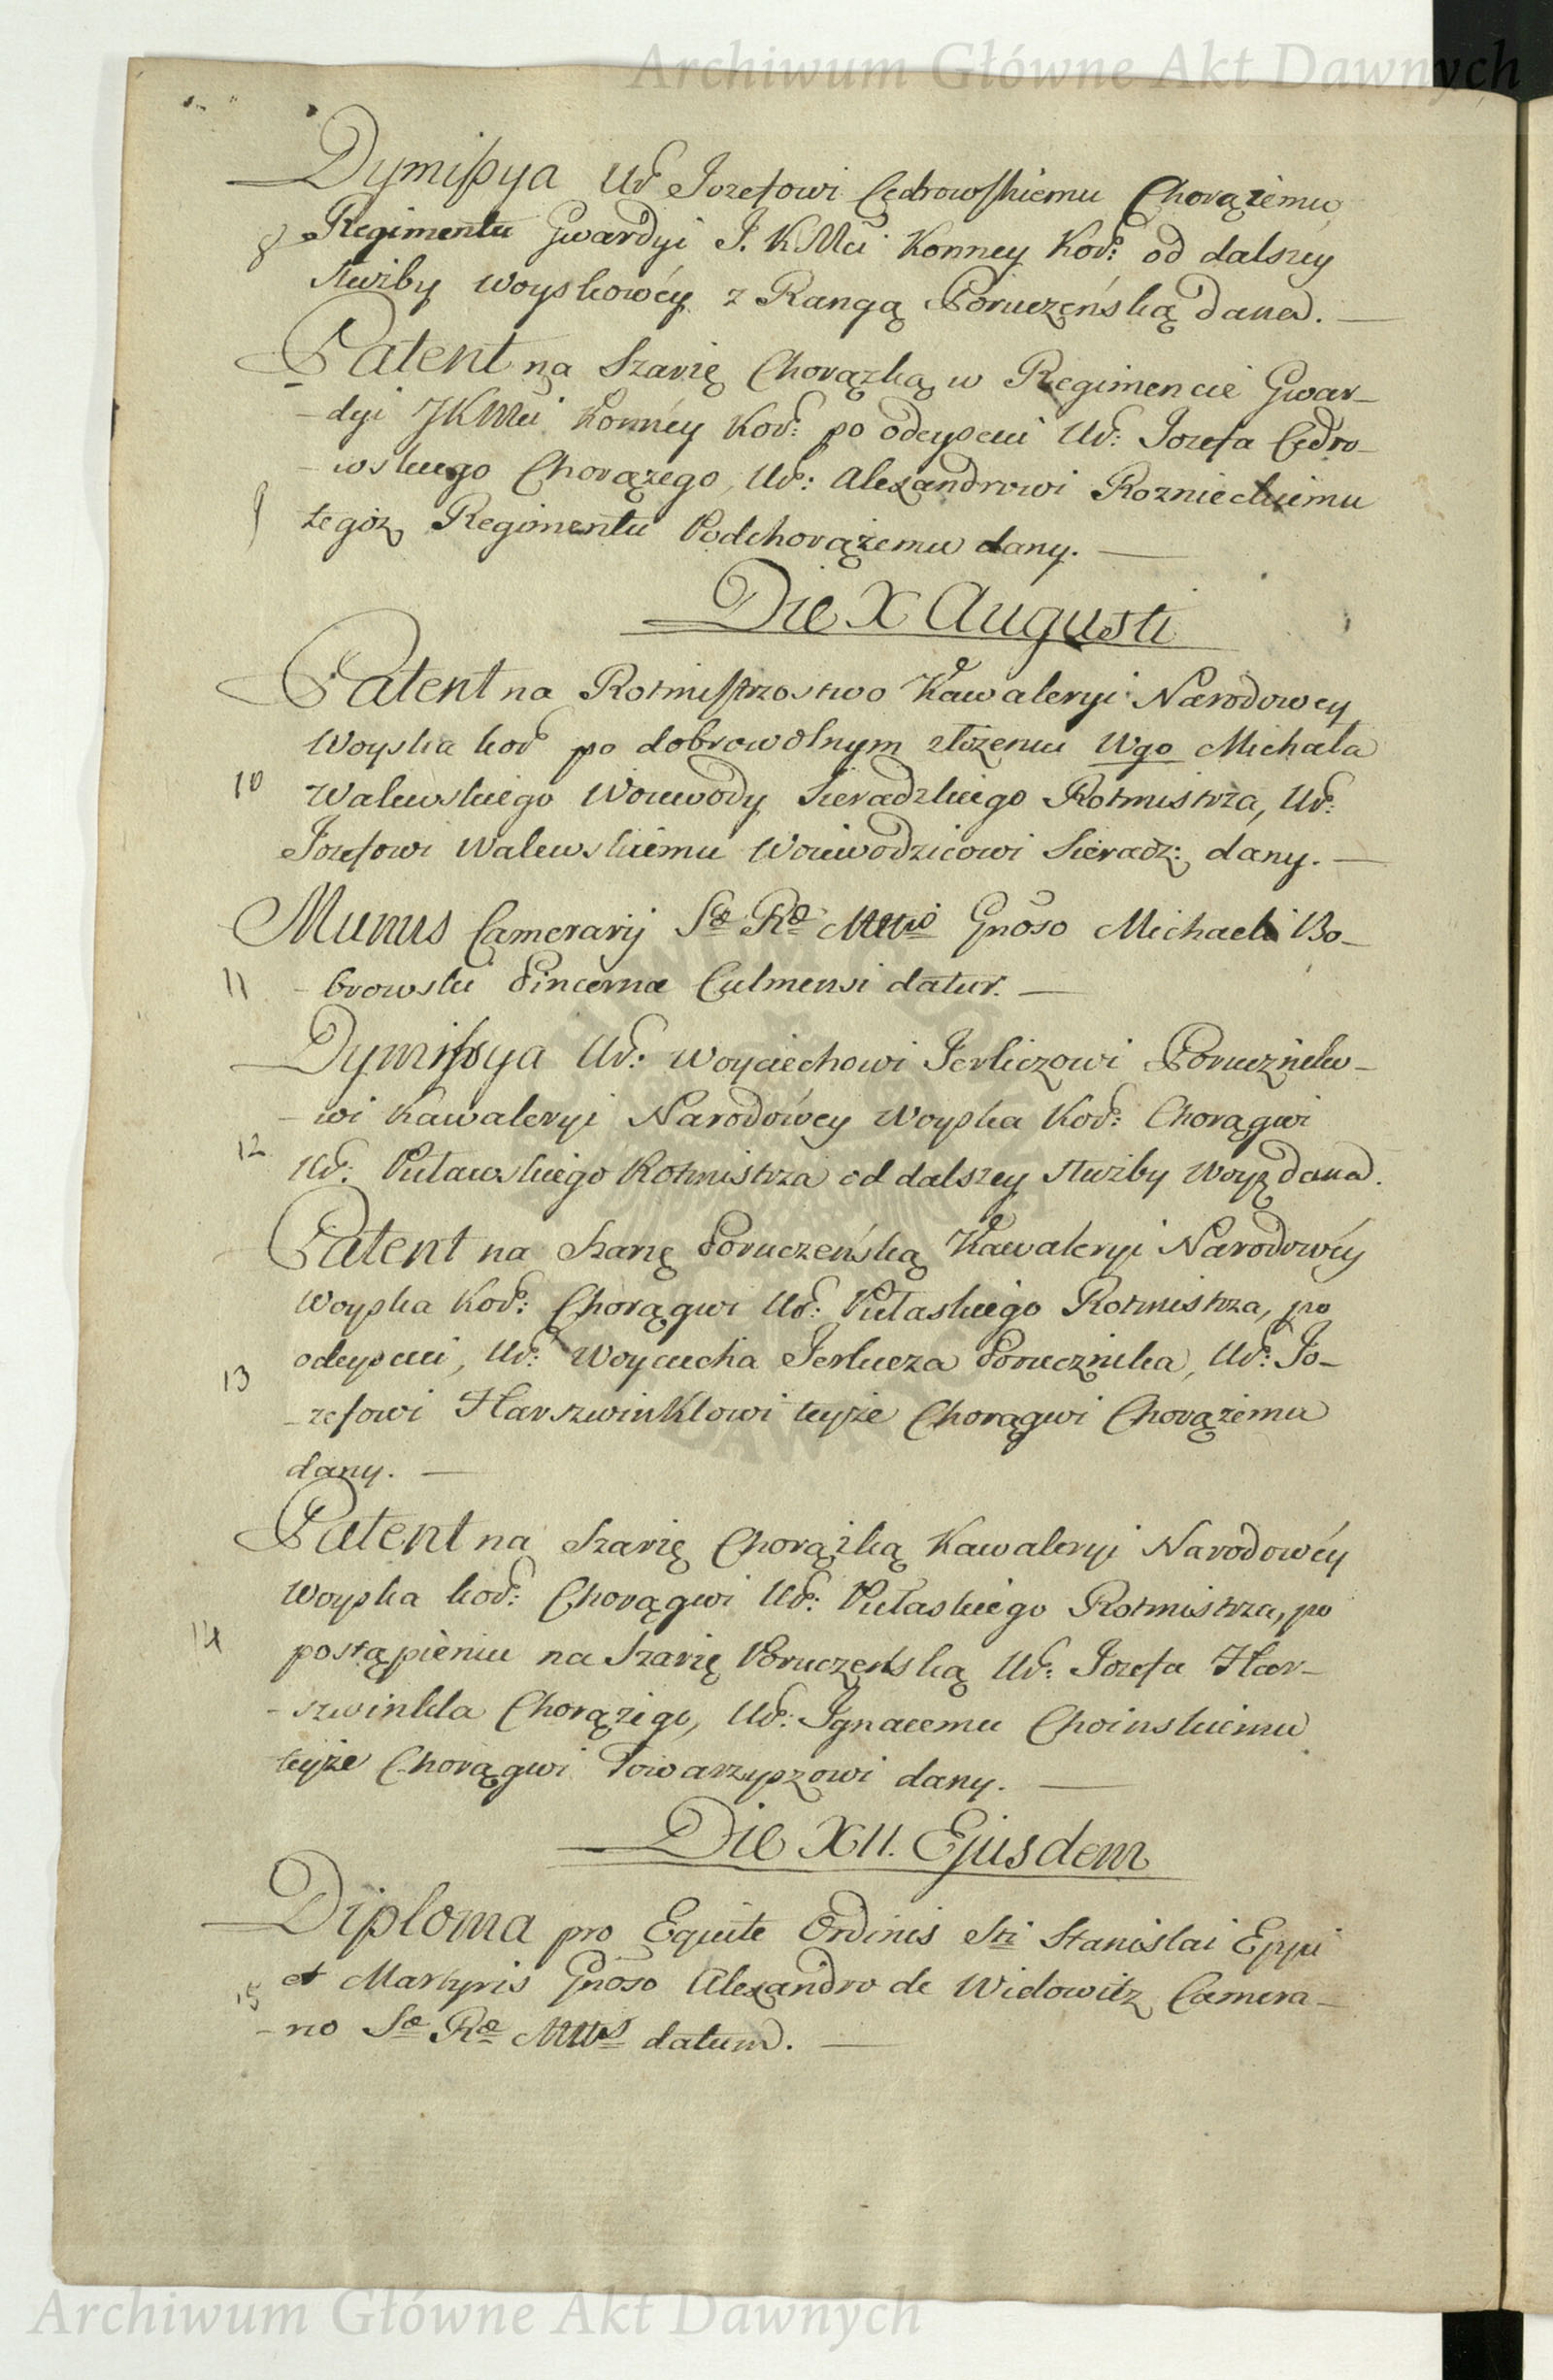 Archiwum Główne Akt Dawnych
Dymissya Ur. Jozefowi Cędrowskiemu Chorążemu
8 Regimentu Gwardyi J. K Mci Konney Kor: od dalszey
służby woyskowéy z Rangą Poruczęńską dana. —
Patent na Szarżę Chorązką w Regimencie Gwar-
-dyi JKMci Konnéy Kor: po odeyściu Ur: Jozefa Cędro-
-wskiego Chorązego, Ur: Alexandrowi Roznieckiemu
9 tegoż Regimentu Podchorążemu dany. —
Die X Augusti
Patent na Rotmistrzostwo Kawaleryi Narodowey
Woyska kor po dobrowolnym złożeniu Wgo Michała
10 Walewskiego Woiewody Sieradzkiego Rotmistrza, Ur:
Jozefowi Walewskiemu Woiewodzicowi Sieradz: dany. —
Munus Camerarij Sæ Ræ Mttis Gnoso Michaeli Bo-
11 -browski Pincernæ Culmensi datur. —
Dymissya Ur: Woyciechowi Jerliczowi Poruczniko-
-wi Kawaleryi Narodowéy Woyska Kor: Chorągwi
12 Ur: Puławskiego Rotmistrza od dalszey służby Woys dana.
Patent na Szarżę Poruczeńską Kawaleryi Narodowéy
Woyska Kor: Chorągwi Ur: Pułaskiego Rotmistrza, po
odeyściu, Ur: Woyciecha Jerlicza Porucznika, Ur: Jo-
13 -zefowi Harszwinkłowi teyże Chorągwi Chorążemu
dany. —
Patent na Szarżę Chorążką Kawaleryi Narodowéy
Woyska kor: Chorągwi Ur: Pułaskiego Rotmistrza, po
14 postąpieniu na Szarżę Poruczęńską Ur: Jozefa Har-
-szwinkla Chorążego, Ur: Ignacemu Choinskiemu
teyże Chorągwi Towarzyszowi dany. —
Die XII. Ejusdem
Diploma pro Equite Ordinis Sti Stanislai Eppi
15 et Martyris Gnoso Alexandro de Widowitz Camera-
-rio Sæ Ræ Mttis datum. —
Archiwum Główne Akt Dawnych